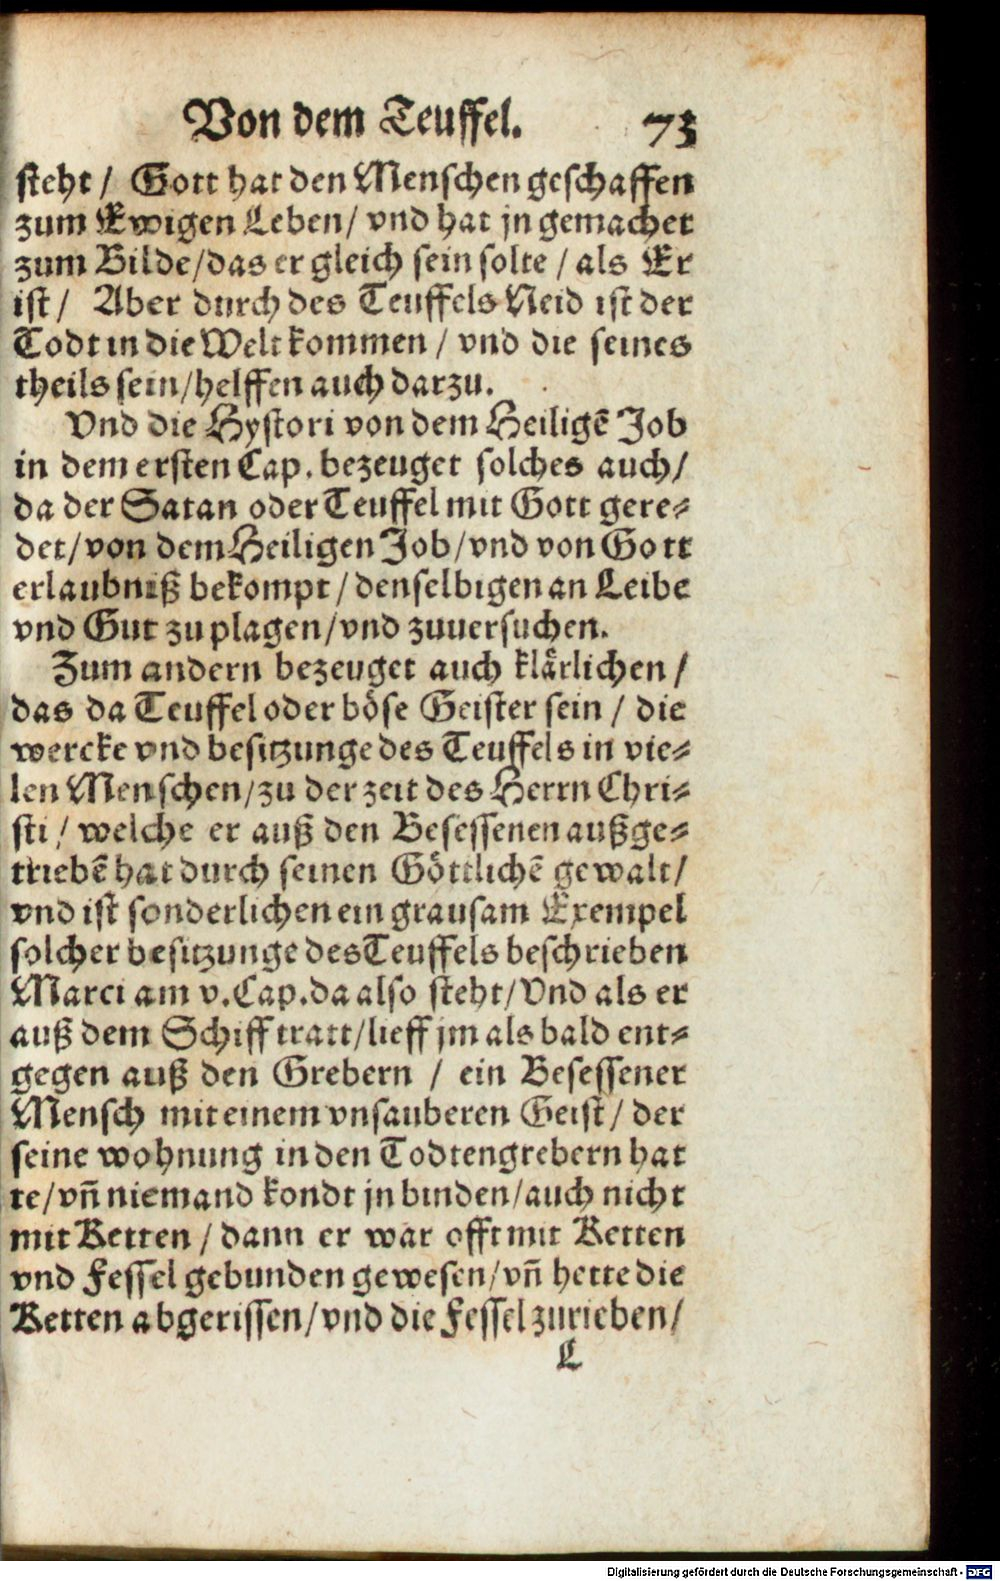 Von dem Teuffel. 73
steht / Gott hat den Menschen geschaffen
zum Ewigen Leben / vnd hat jn gemachet
zum Bilde / das er gleich sein solte / als Er
ist / Aber durch des Teuffels Neid ist der
Todt in die Welt kommen / vnd die seines
theils sein / helffen auch darzu.
Vnd die Hystori von dem Heiligē Job
in dem ersten Cap. bezeuget solches auch /
da der Satan oder Teuffel mit Gott gere⸗
det / von dem Heiligen Job / vnd von Gott
erlaubniß bekompt / denselbigen an Leibe
vnd Gut zu plagen / vnd zuuersuchen.
Zum andern bezeuget auch klärlichen /
das da Teuffel oder böse Geister sein / die
wercke vnd besitzunge des Teuffels in vie⸗
len Menschen / zu der zeit des Herrn Chri⸗
sti / welche er auß den Besessenen außge⸗
triebē hat durch seinen Göttlichē gewalt /
vnd ist sonderlichen ein grausam Exempel
solcher besitzunge des Teuffels beschrieben
Marci am v. Cap. da also steht / Vnd als er
auß dem Schiff tratt / lieff jm als bald ent⸗
gegen auß den Grebern / ein Besessener
Mensch mit einem vnsauberen Geist / der
seine wohnung in den Todtengrebern hat
te / vn̄ niemand kondt jn binden / auch nicht
mit Ketten / dann er war offt mit Ketten
vnd Fessel gebunden gewesen / vn̄ hette die
Ketten abgerissen / vnd die Fessel zurieben /
L
Digitalisierung gefördert durch die Deutsche Forschungsgemeinschaft - DFG